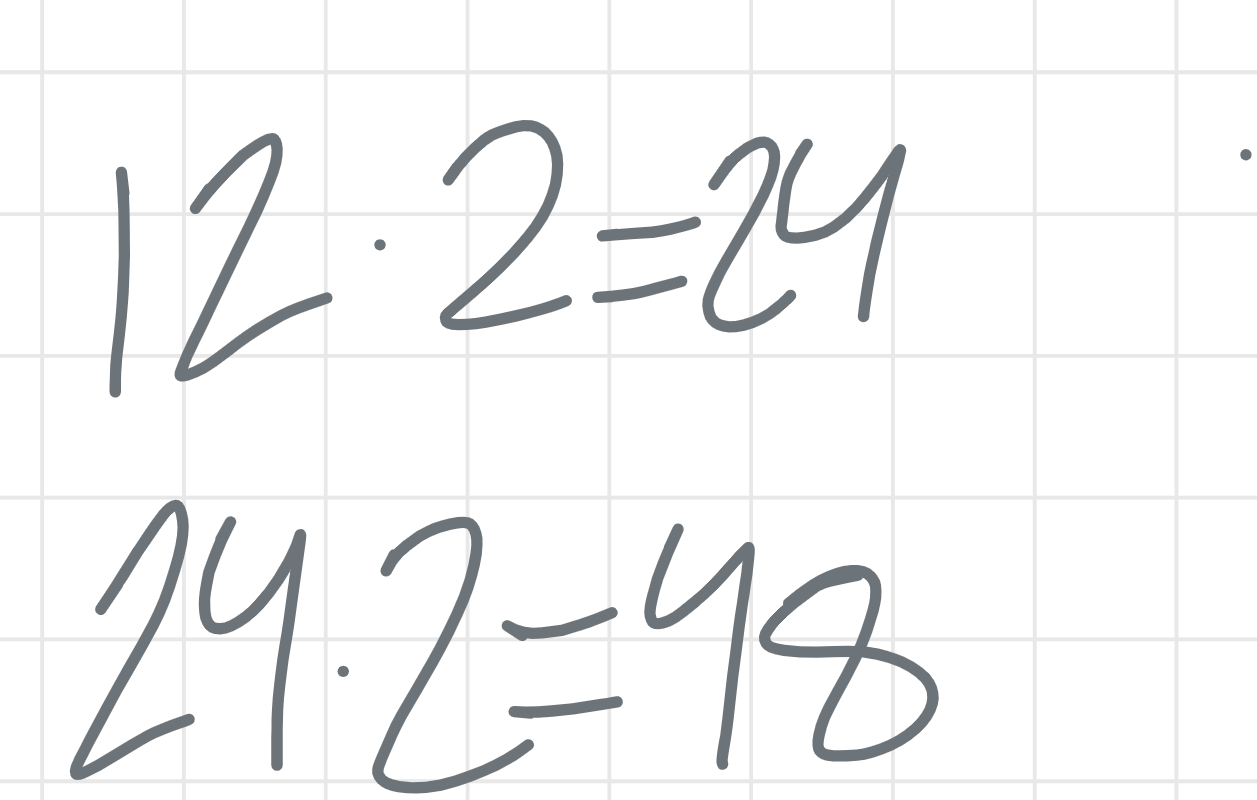 12 · 2 = 24
24 · 2 = 48